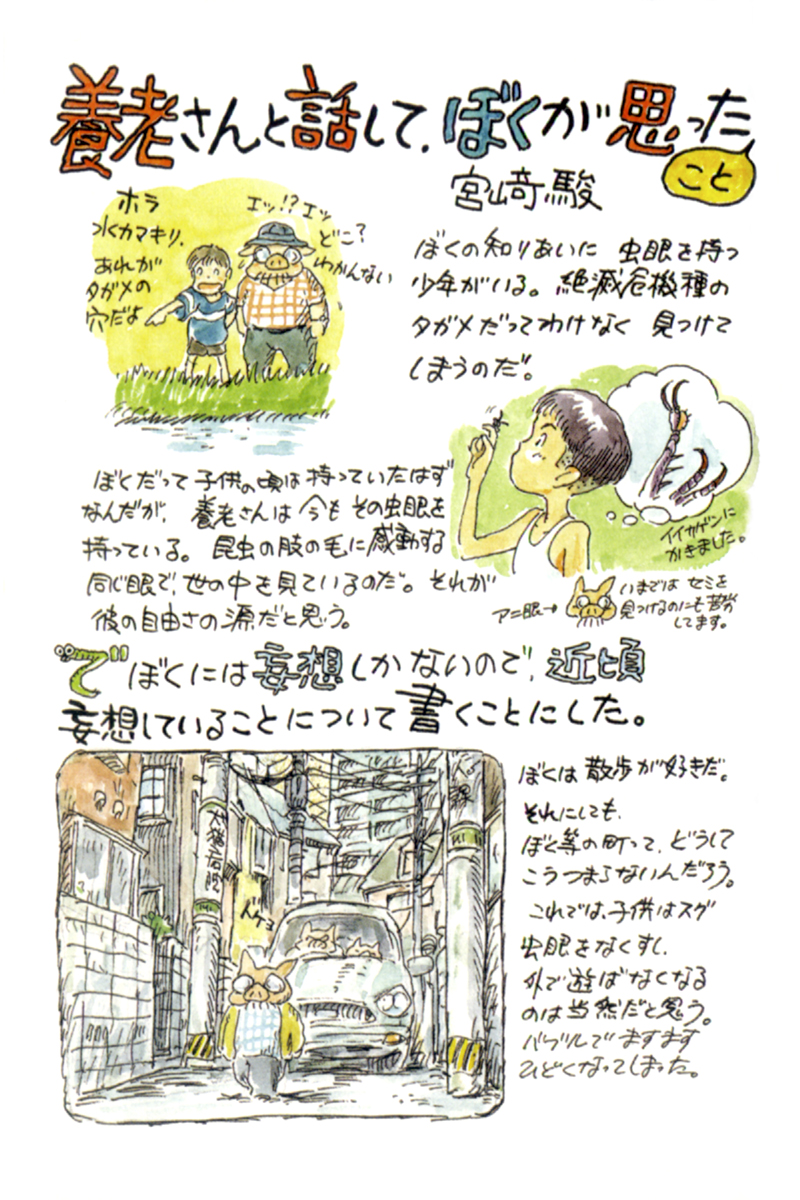 養老さんと話して、ぼくが思った
こと
宮崎駿
ホラ
水カマキリ、
あれが
タガメの
穴だよ
エッ!?エッ
どこ?
わかんない
ぼくの知りあいに 虫眼を持つ
少年がいる。絶滅危機種の
タガメだってわけなく 見つけて
しまうのだ。
イイカゲンに
かきました。
ぼくだって子供の頃は持っていたはず
なんだが、 養老さんは今もその虫眼を
持っている。 昆虫の肢の毛に感動する
同じ眼で、世の中を見ているのだ。それが
彼の自由さの源だと思う。
アニ眼→
いまでは セミを
見つけるのにも苦労
してます。
でぼくには妄想しかないので、近頃
妄想していることについて書くことにした。
犬猫病院
課
ドケョ
ぼくは散歩が好きだ。
それにしても、
ぼく等の町って、どうして
こうつまらないんだろう。
これでは、子供はスグ
虫眼をなくすし、
外で遊ばなくなる
のは当然だと思う。
バブルでますます
ひどくなってしまった。